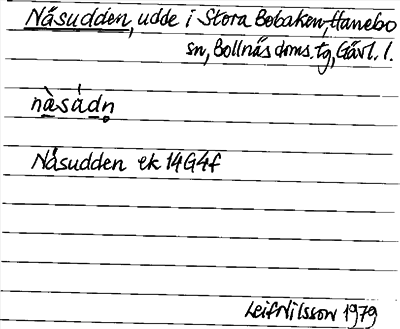 Näsudden, udde i Stora Bobaken, Hanebo
sn, Bollnäs doms.tg, Gävl. l.
nàsádn̥
Näsudden ek 14G4f
Leif Nilsson 1979